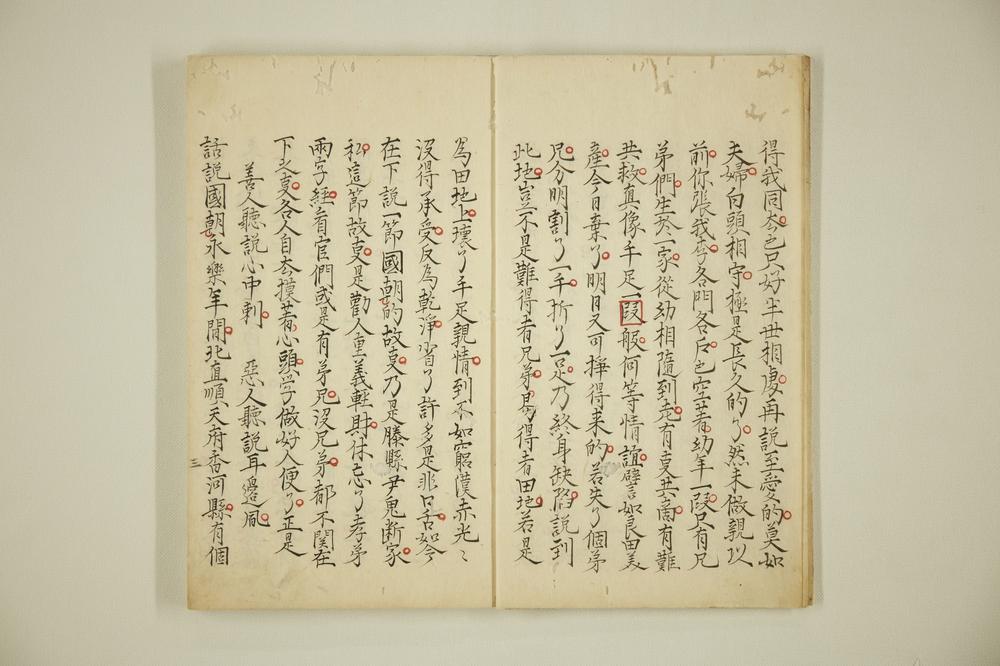 得我同去也只好半世相處再說至愛的莫如
夫婦白頭相守極是長久的了然未做親以
前你張我李各門各戶也空著幼年一段只有兄
弟們生於一家從幼相隨到老有叓共商有難
共救真像手足一段般何等情誼譬如良田美
產今日棄了明日又可掙得来的若失了個弟
兄分明割了一手折了一足乃終身缺陷說到
此地豈不是難得者兄弟易得者田地若是
為田地上壞了手足親情到不如窮漢赤光〻
沒得承受反為乾淨省了許多是非口舌如今
在下説一節國朝的故叓乃是滕縣尹鬼断家
私這節故叓是勸人重義軽財休忘了孝弟
兩字經看官們或是有弟兄沒兄弟都不関在
下之叓各人自去摸著心頭学做好人便了正是
善人聽說心中刺　惡人聽說耳邊風
話説國朝永樂年間北直順天府香河縣有個
三